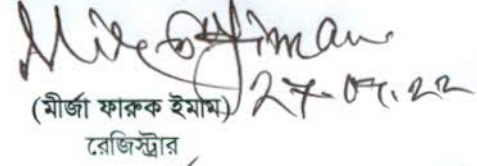 27.07.22
(মীর্জা ফারুক ইমাম)
রেজিস্ট্রার